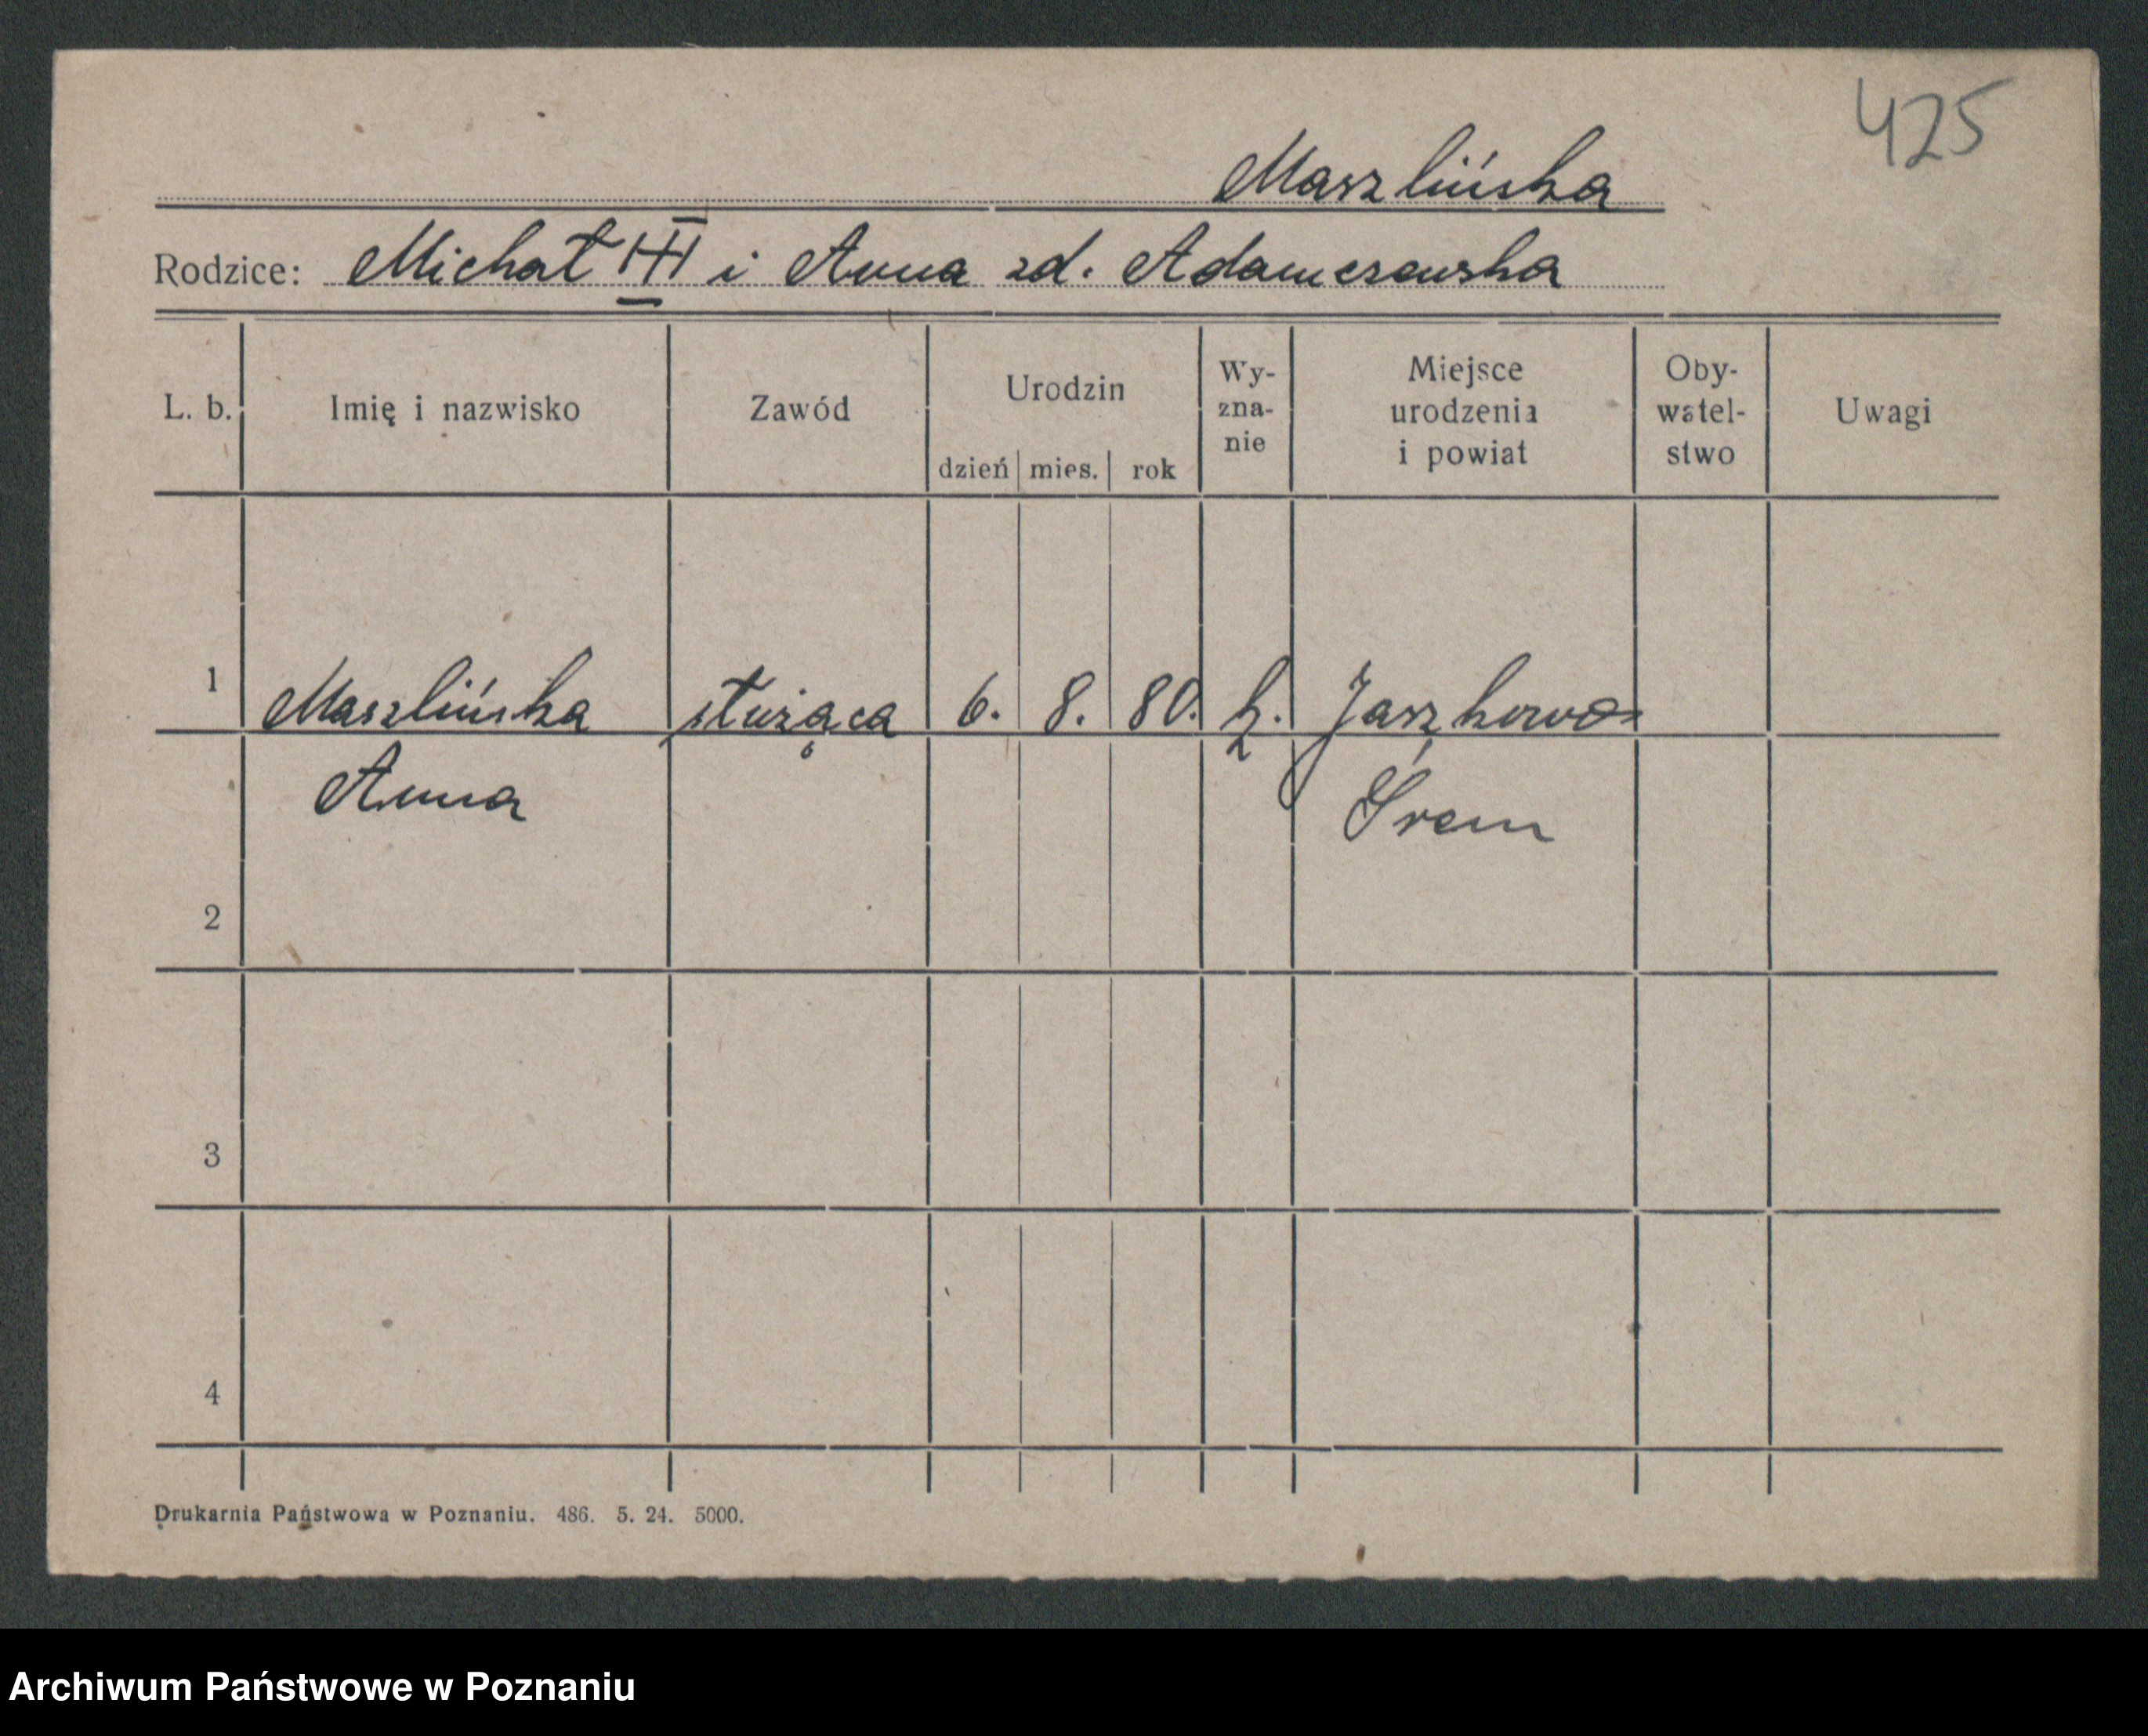 425
Maszlińska
Rodzice: Michał i Anna zd. Adamczewska
L. b. Imię i nazwisko Zawód Urodzin dzień mies. rok Wy-zna-nie Miejsce urodzenia i powiat Oby-watel-stwo Uwagi
1 Maszlińska służąca 6. 8. 80. k. Jaszkowo
Anna Śrem
2
3
4
Drukarnia Państwowa w Poznaniu. 486. 5. 24. 5000.
Archiwum Państwowe w Poznaniu